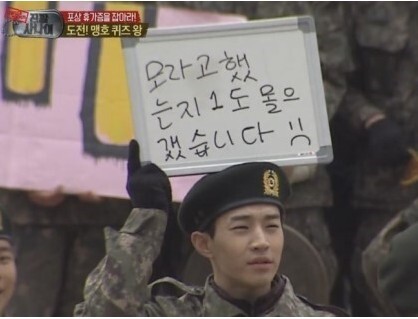 진짜 사나이
포상 휴가증을 잡아라!
도전! 맹호 퀴즈 왕
모라고했
는지 1도 몰으
겠습니다 :(